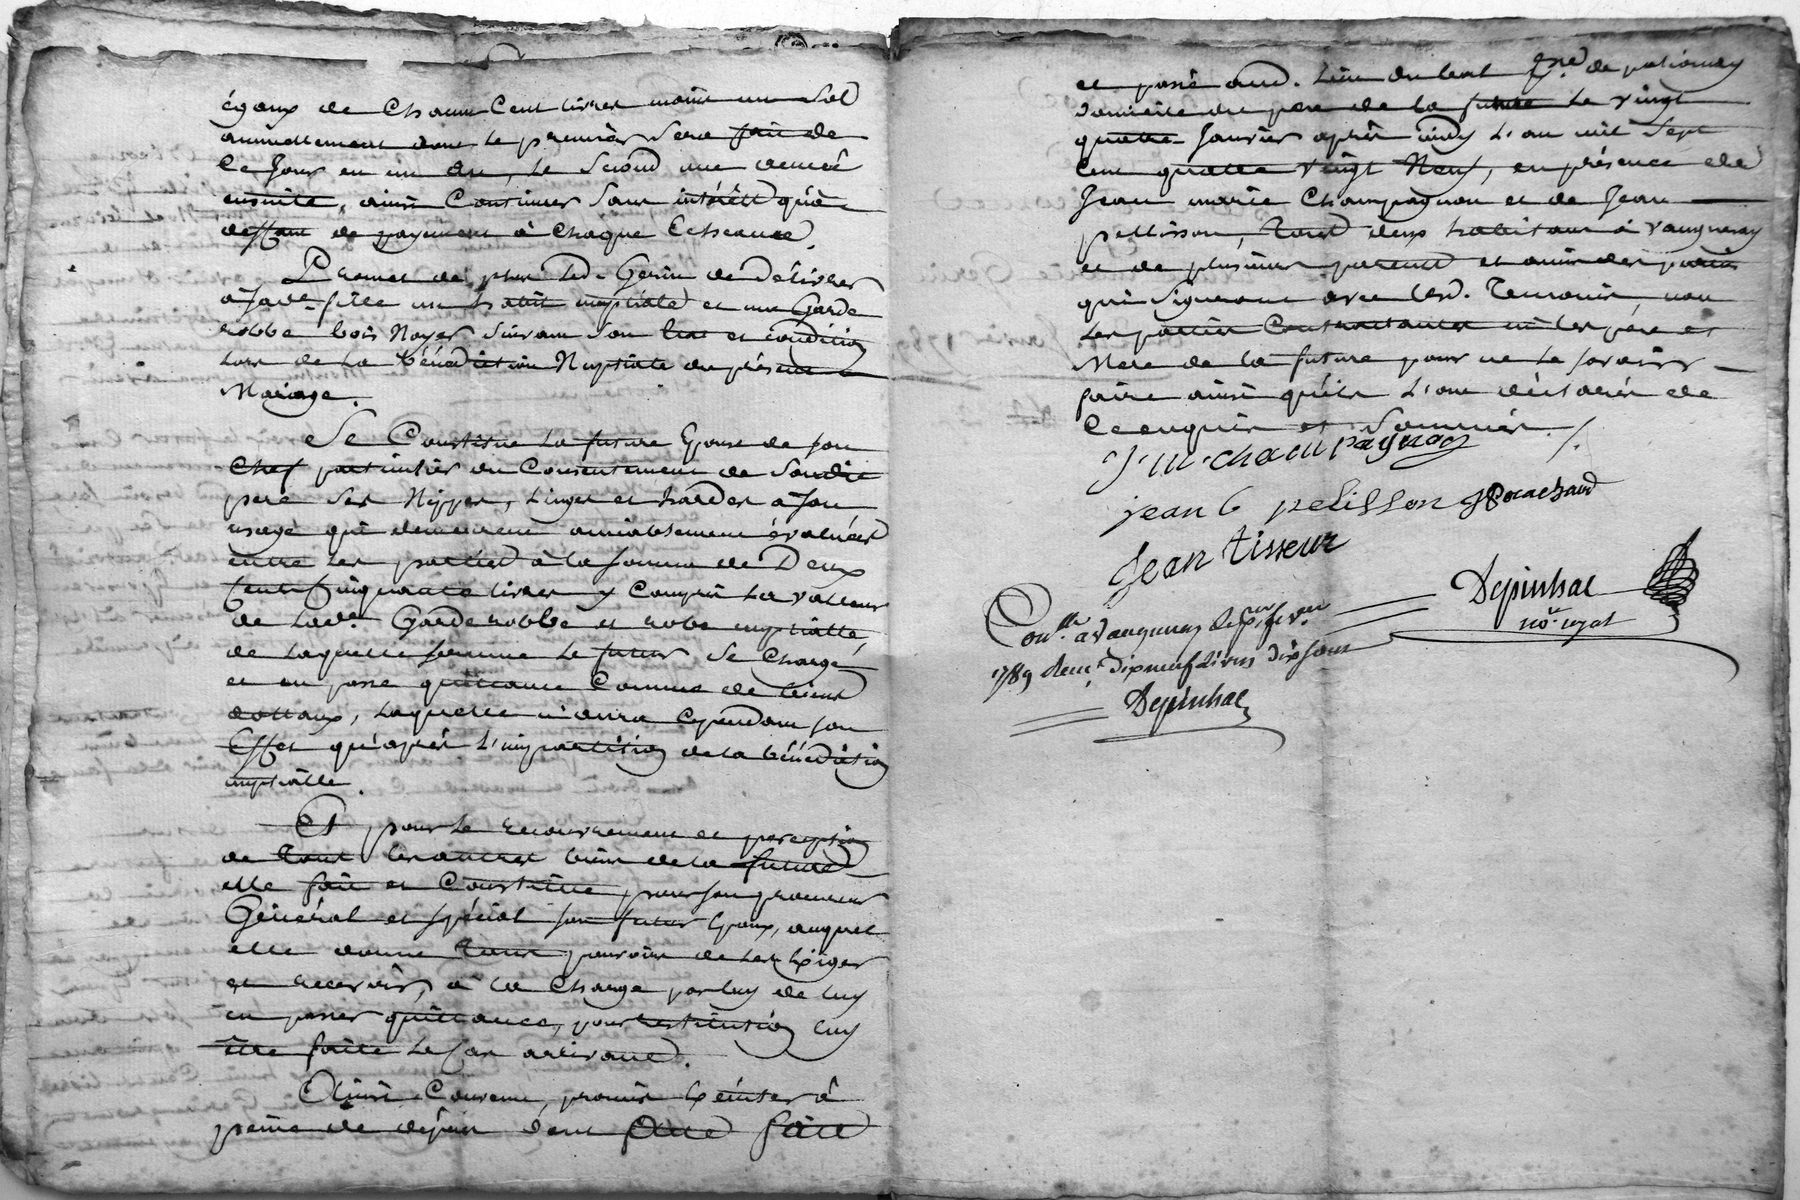 égaux de Chacun Cent livres moins un Sol
annuellement dont le premier Sera fait de
Ce Jour en un an, le Second une année
ensuite, ainsi Continuer Sans intérêtt qu'à
deffaut de payement à Chaque Echeance.
Promet de plus led. Gerin de Délivrer
à Sad.e fille un habit nuptiale et un Garde
robbe bois Noyer Suivant Son Etat et condition
lors de la bénédiction Nuptiale du présent
Mariage.
Se Constitue la future Epouse de Son
Chef particulier du Consentement de Sondit
pere Ses Nippes, linges et hardes à Son
usage qui demeurent amiablement évalués
entre les parties à la Somme de Deux
Cent Cinquante livres y Compris la valleur
de lad.e Garderobbe et robe nuptialle,
de laquelle Somme le futur Se Charge
et en passe quittance Comme de biens
dottaux, laquelle n'aura Cependant Son
Effet qu'après l'impartition de la bénédiction
nuptialle.
Et pour le recouvrement et perception
de tout les autres biens de la future
elle fait et Constitue pour Son procureur
Général et Spécial Son futur Epoux, auquel
elle donne tout pouvoir de les Exiger
et recevoir, à la Charge par luy de luy
en passer quittance, pour restitution luy
être faitte le Cas arrivant.
Ainsi Convenu, promis Exécuter à
peine de dépens dont Acte Fait
et passé aud. lieu de de
domicile du pere de la future le vingt
quatre Janvier après midy l'an mil Sept
Cent quatre vingt Neuf, en présence de
Jean marie Champagnon et de Jean
pellisson, tout deux habitant à Vaugneray
et de plusieurs parents et amis des parties
qui Signeront avec lesd. temoins, non
les parties Contractantes ni les père et
Mere de la future pour ne le Savoir
faire ainsi qu'ils l'ont déclaré de
Ce enquis et Sommés./.
J m champagnon
jean pelisson
Jean tisseur
Depinhac
no.re royal
Con.lle a Vaugneray le
1789 Reçu dix neuf livres dix Sous
Depinhac